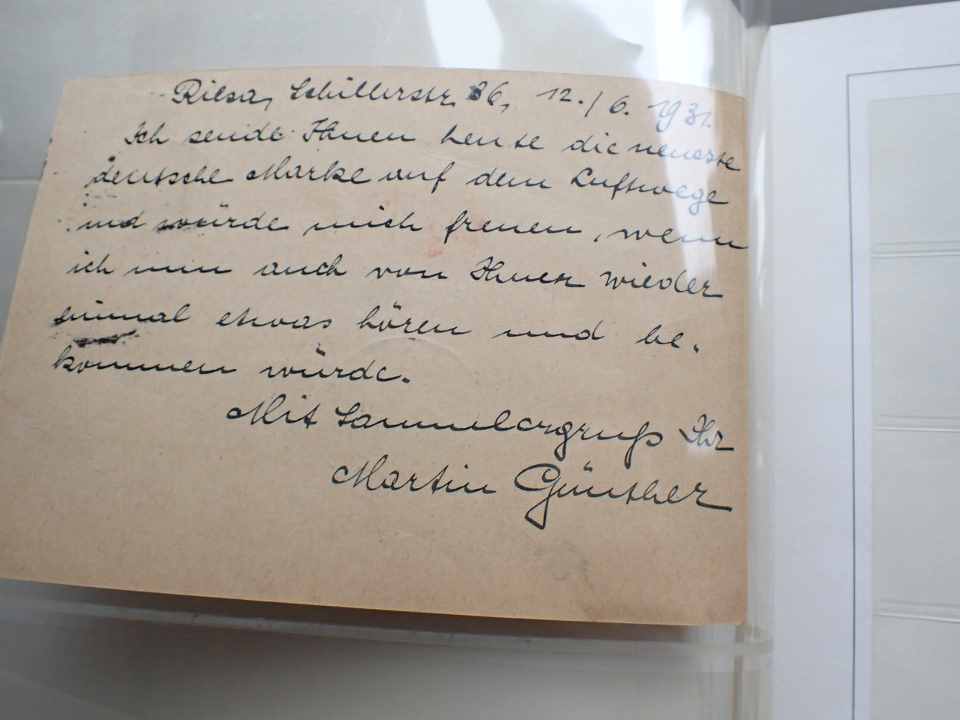 Riesa, Schillerstr. 36, 12./6. 1931.
Ich sende Ihnen heute die neueste
deutsche Marke auf dem Luftwege
und würde mich freuen, wenn
ich nun auch von Ihnen wieder
einmal etwas hören und be-
kommen würde.
Mit Sammlergruß Ihr
Martin Günther